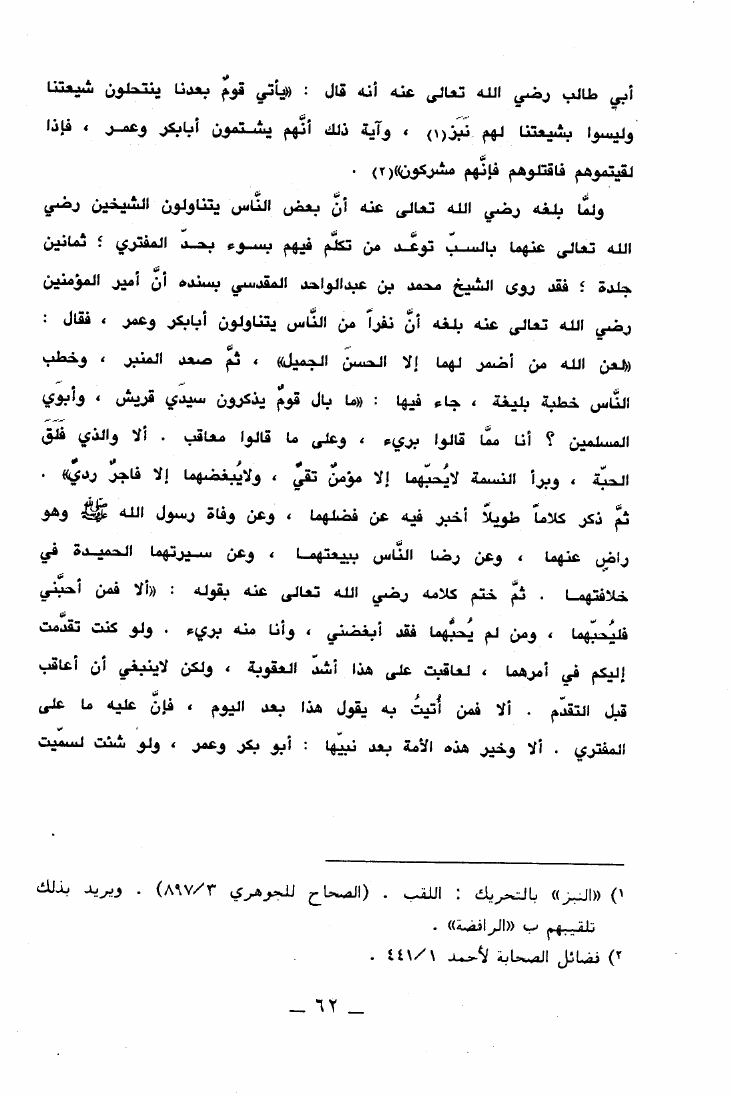 أبي طالب رضي الله تعالى عنه أنه قال : «يأتي قومٌ بعدنا ينتحلون شيعتنا
وليسوا بشيعتنا لهم نَبَز(١) ، وآية ذلك أنَّهم يشـتمون أبابكر وعمـر ، فإذا
لقيتموهم فاقتلوهم فإنَّهم مشركون»(٢) .
ولمَّا بلغه رضي الله تعالى عنه أنَّ بعض النَّاس يتناولون الشيخين رضي
الله تعالى عنهما بالسـبّ توعَّـد من تكلَّم فيهم بسـوء بحـدّ المفتري ؛ ثمانين
جلدة ؛ فقد روى الشيخ محمد بن عبدالواحد المقدسي بسنده أنَّ أمير المؤمنين
رضي الله تعالى عنه بلغه أنَّ نفراً من النَّاس يتناولون أبابكر وعمر ، فقال :
«لعن الله من أضمر لهما إلا الحسنَ الجميل» ، ثمَّ صعد المنبر ، وخطب
النَّاس خطبة بليغة ، جاء فيها : «ما بال قومٌ يذكرون سيدَي قريش ، وأبوَي
المسلمين ؟ أنا ممَّا قالوا بريء ، وعلى ما قالوا معاقب . ألا والذي فَلَقَ
الحبّة ، وبرأ النسمة لايُحبّهما إلا مؤمنٌ تقيٌّ ، ولايُبغضهما إلا فاجرٌ رديٌّ» .
ثمَّ ذكر كلاماً طويلاً أخبر فيه عن فضلهما ، وعن وفاة رسول الله ﷺ وهو
راضٍ عنهما ، وعن رضا النَّاس ببيعتهمـا ، وعن سـيرتهما الحميـدة في
خلافتهمـا . ثمَّ ختم كلامه رضي الله تعالى عنه بقوله : «ألا فمن أحبَّني
فليُحبّهما ، ومن لم يُحبُّهما فقد أبغضني ، وأنا منه بريء . ولو كنت تقدَّمت
إليكم في أمرهما ، لعاقبت على هذا أشدّ العقوبة ، ولكن لاينبغي أن أعاقب
قبل التقدّم . ألا فمن أُتيتُ به يقول هذا بعد اليوم ، فإنَّ عليه ما على
المفتري . ألا وخير هذه الأمة بعد نبيّها : أبو بكر وعمر ، ولو شئت لسمّيت
١) «النبز» بالتحريك : اللقب . (الصحاح للجوهري ٨٩٧/٣) . ويريد بذلك
تلقيبهم ب «الرافضة» .
٢) فضائل الصحابة لأحمد ٤٤١/١ .
_ ٦٢ _